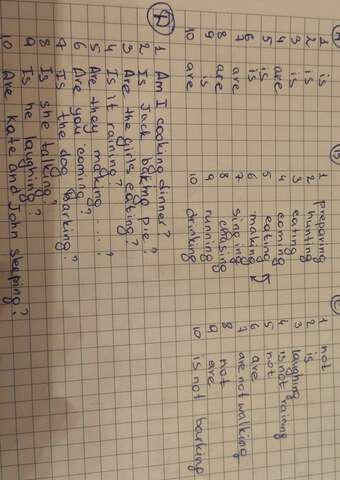 A
1 is
2 is
3 is
4 are
5 is
6 is
7 are
8 are
9 is
10 are
B
1 preparing
2 hunting
3 eating
4 coming
5 eating
6 making
7 singing
8 chasing
9 running
10 drinking
1 not
2 is
3 laughing
4 is not raining
5 not
6 are
7 are not walking
8 not
9 are
10 is not barking
1 Am I cooking dinner?
2 Is Jack baking pie?
3 Are the girls eating?
4 Is it raining?
5 Are they making ....?
6 Are you coming?
7 Is the dog barking?
8 Is she talking?
9 Is he laughing?
10 Are Kate and John sleeping?